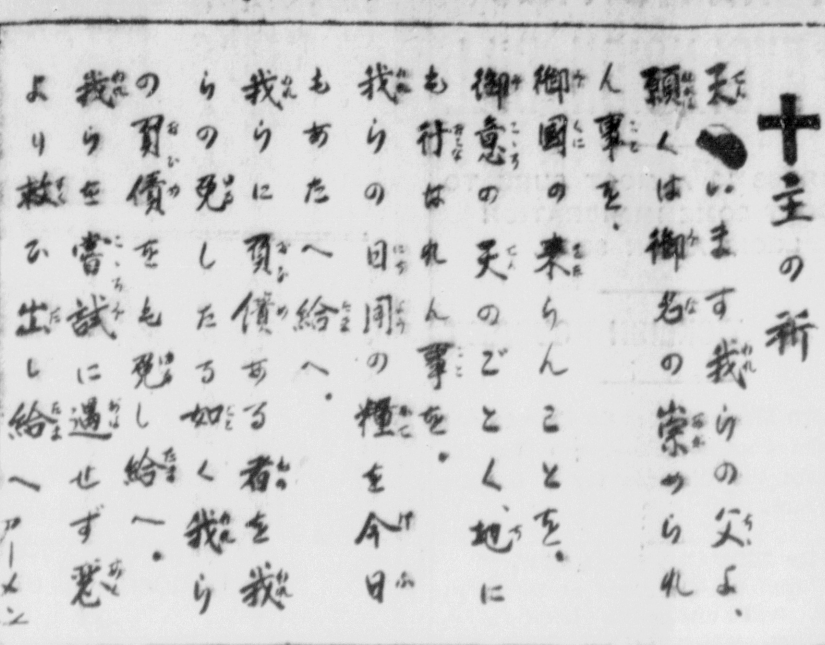 主の祈
天います我らの父よ、
願くは御名の崇められ
ん事を。
御國の来らんことを。
御意の天のごとく、地に
も行はれん事を。
我らの日用の糧を今日
もあたへ給へ。
我らに負債ある者を我
らの免したる如く我ら
の負債をも免し給へ。
我らを嘗試に遇せず悪
より救ひ出し給へアーメン